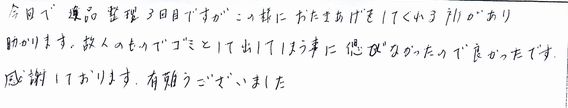 今日で遺品整理3日目ですがこの様におたきあげをしてくれる所があり
助かります。故人のものでゴミとして出してしまう事に偲びなかったので良かったです。
感謝しております。有難うございました